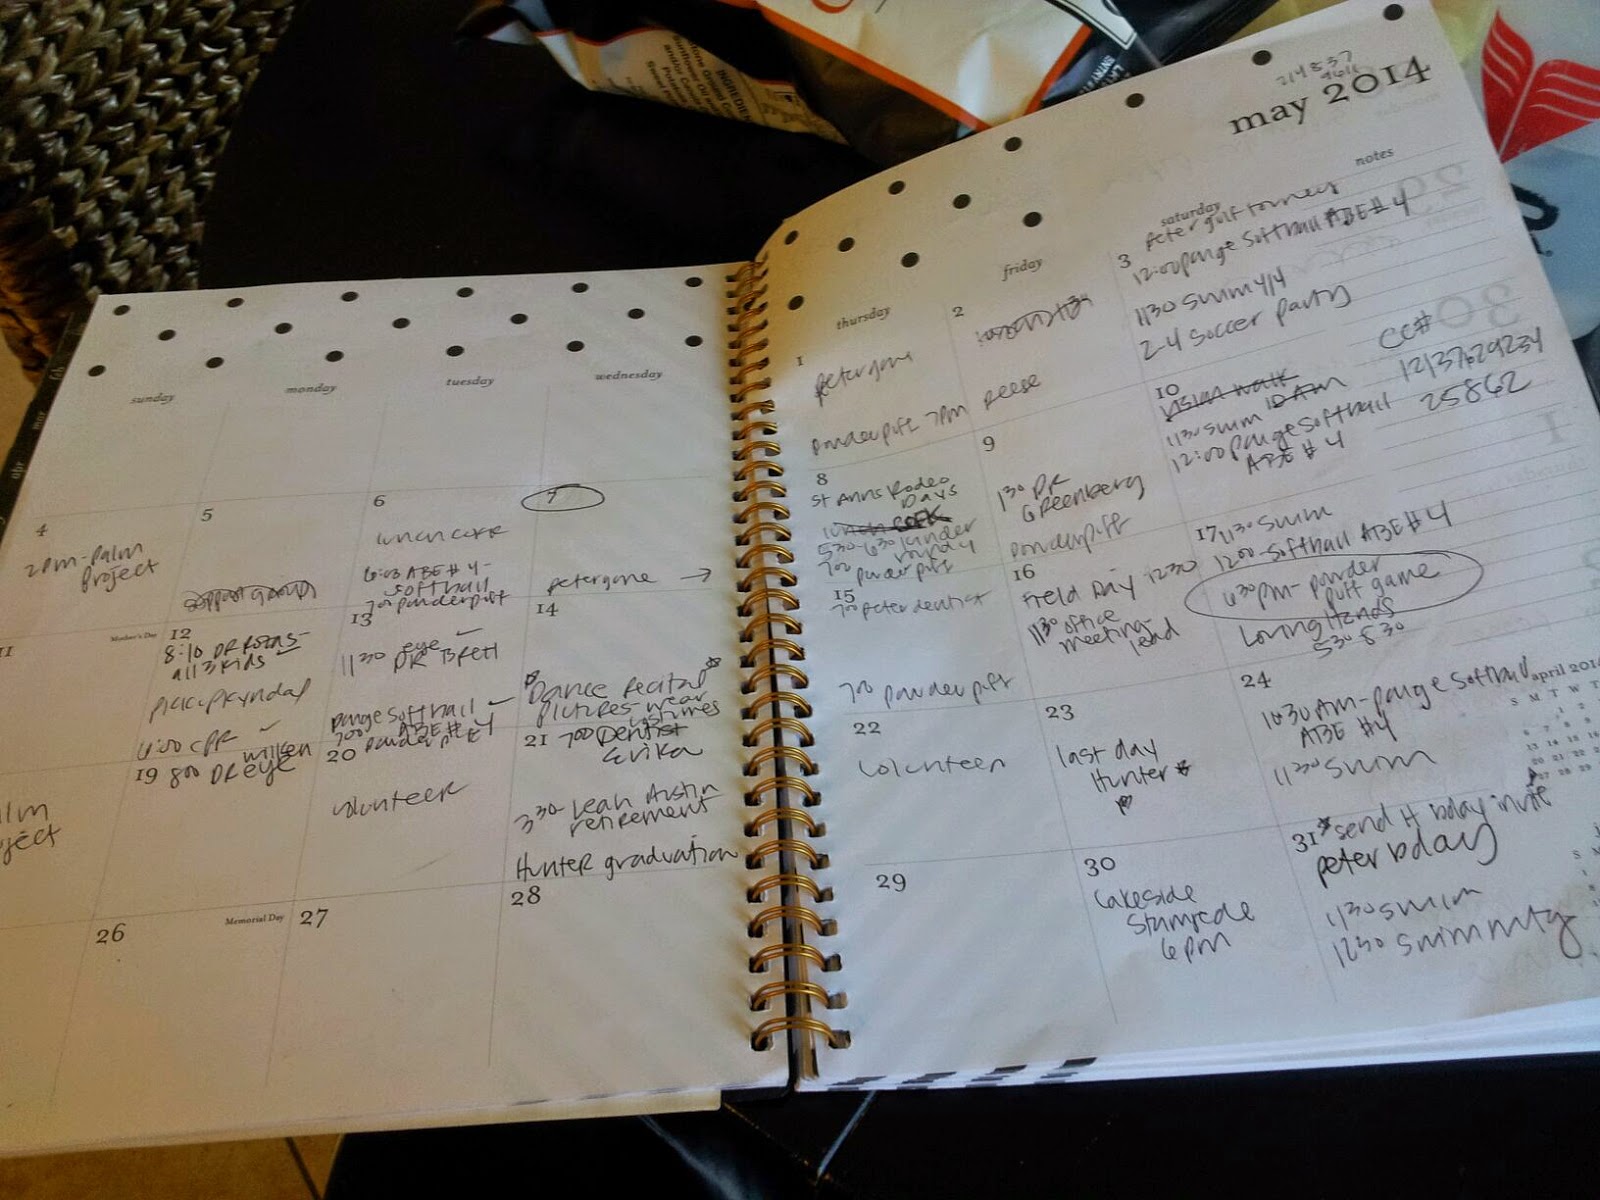 may 2014
notes
CC#
25862
sunday
monday
tuesday
wednesday
thursday
friday
saturday
1
peter gone
powderpuff 7pm
2
reese
3
peter golf tourney
12:00 paige softball ABE #4
1130 swim 4/4
2-4 soccer party
4
2pm-palm
project
5
support group
6
lunch
6:00 ABE #4-
softball
700 powderpuff
7
peter gone →
8
St Anns Rodeo
Days
530-630 kinder
round
700
powderpuff
9
130 DR
Greenberg
powderpuff
10
1130 swim
12:00 paige softball
ABE #4
11
Mother's Day
12
8:10 DR
all 3 kids
6:00 CPR
13
eye
1130 DR Brett
paige softball
ABE #4
700 powderpuff
14
Dance Recital
pictures-wear
costumes
15
700 peter dentist
700 powderpuff
16
Field Day 1230
1130 office
meeting-
lead
17
1130 swim
1200-softball ABE #4
630pm-powder
puff game
Loving Hands
530-830
lm
ject
19
800 DR eye
20
volunteer
21
700 Dentist
Erika
330 Leah Austin
retirement
Hunter graduation
22
volunteer
23
last day
Hunter
24
1030 AM-paige softball
ABE #4
1130 swim
26
Memorial Day
27
28
29
30
Lakeside
Stampede
6pm
31
send H bday invite
peter bday
1130 swim
1230 swim mtg
april 2014
S M T W T
INGREDIENTS
Sunflower Oil
and/or